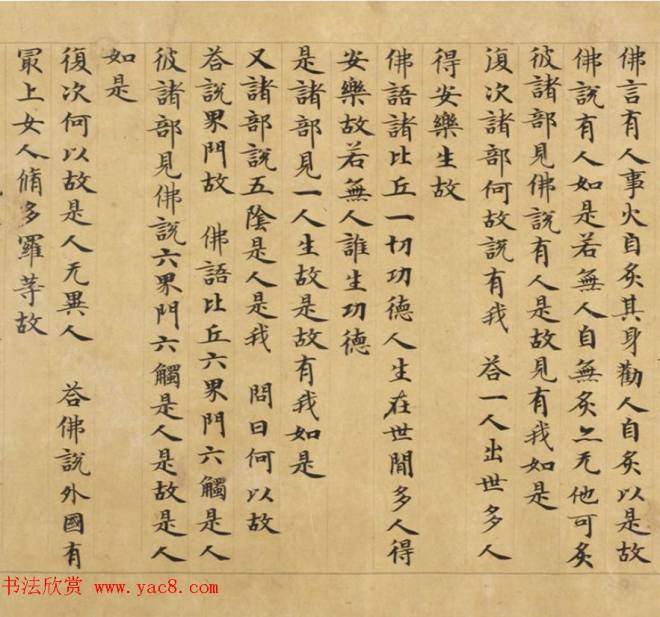 佛言有人事火自炙其身勸人自炙以是故
佛說有人如是若無人自無炙亦无他可炙
彼諸部見佛說有人是故見有我如是
復次諸部何故說有我　荅一人出世多人
得安樂生故
佛語諸比丘一切功德人生在世間多人得
安樂故若無人誰生功德
是諸部見一人生故是故有我如是
又諸部說五陰是人是我　問曰何以故
荅說界門故　佛語比丘六界門六觸是人
彼諸部見佛說六界門六觸是人是故是人
如是
復次何以故是人无異人　荅佛說外國有
冣上女人脩多羅等故
书法欣赏 www.yac8.com